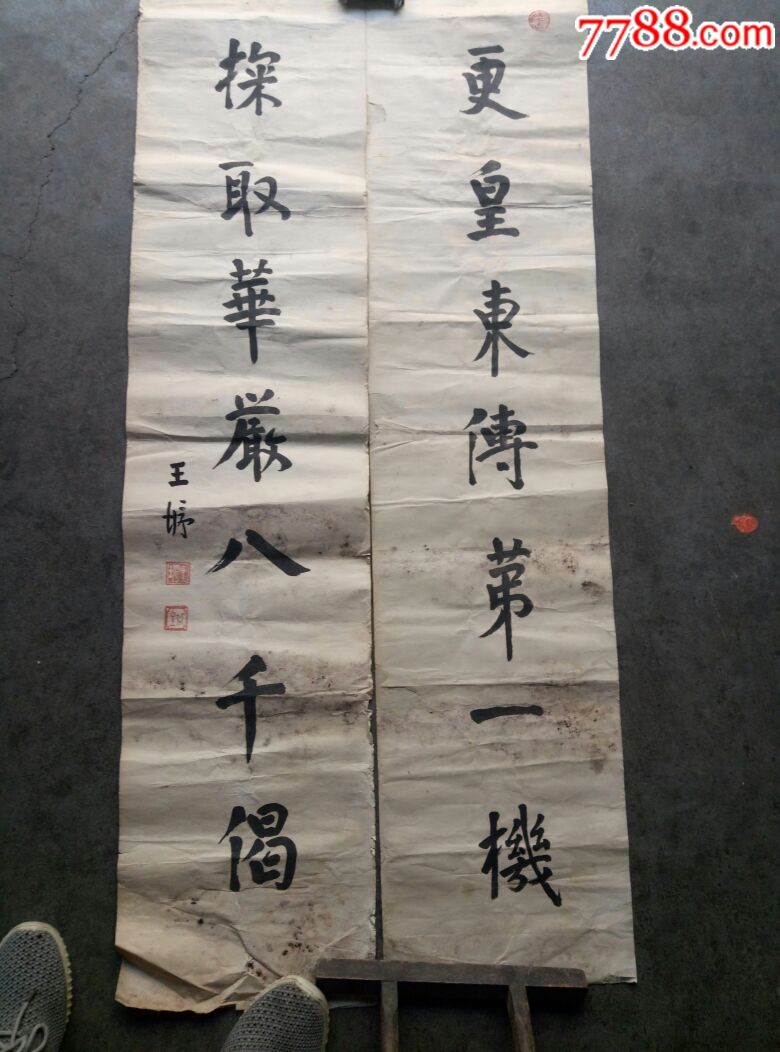 7788.com
更皇東傳苐一機
探取華厳八千偈
王